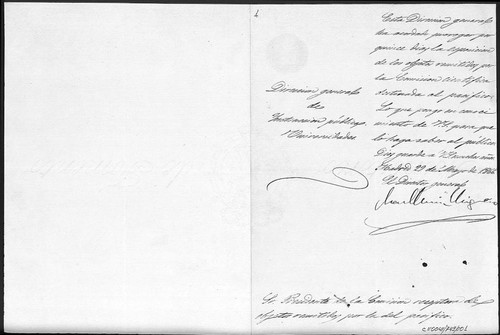 Direccion general
de
Instruccion pública
Universidades
Esta Direccion general
ha acordado prorogar por
quince dias la esposicion
de los objetos remitidos por
la Comision cientifica
destinada al pacifico.
Lo que pongo en conoci
miento de V.S. para que
lo haga saber al público
Dios guarde a V.S. muchos años
Madrid 29 de Mayo de 1866
El Director general
Sr. Presidente de la Comision receptora de
objetos remitidos por la del pacifico.